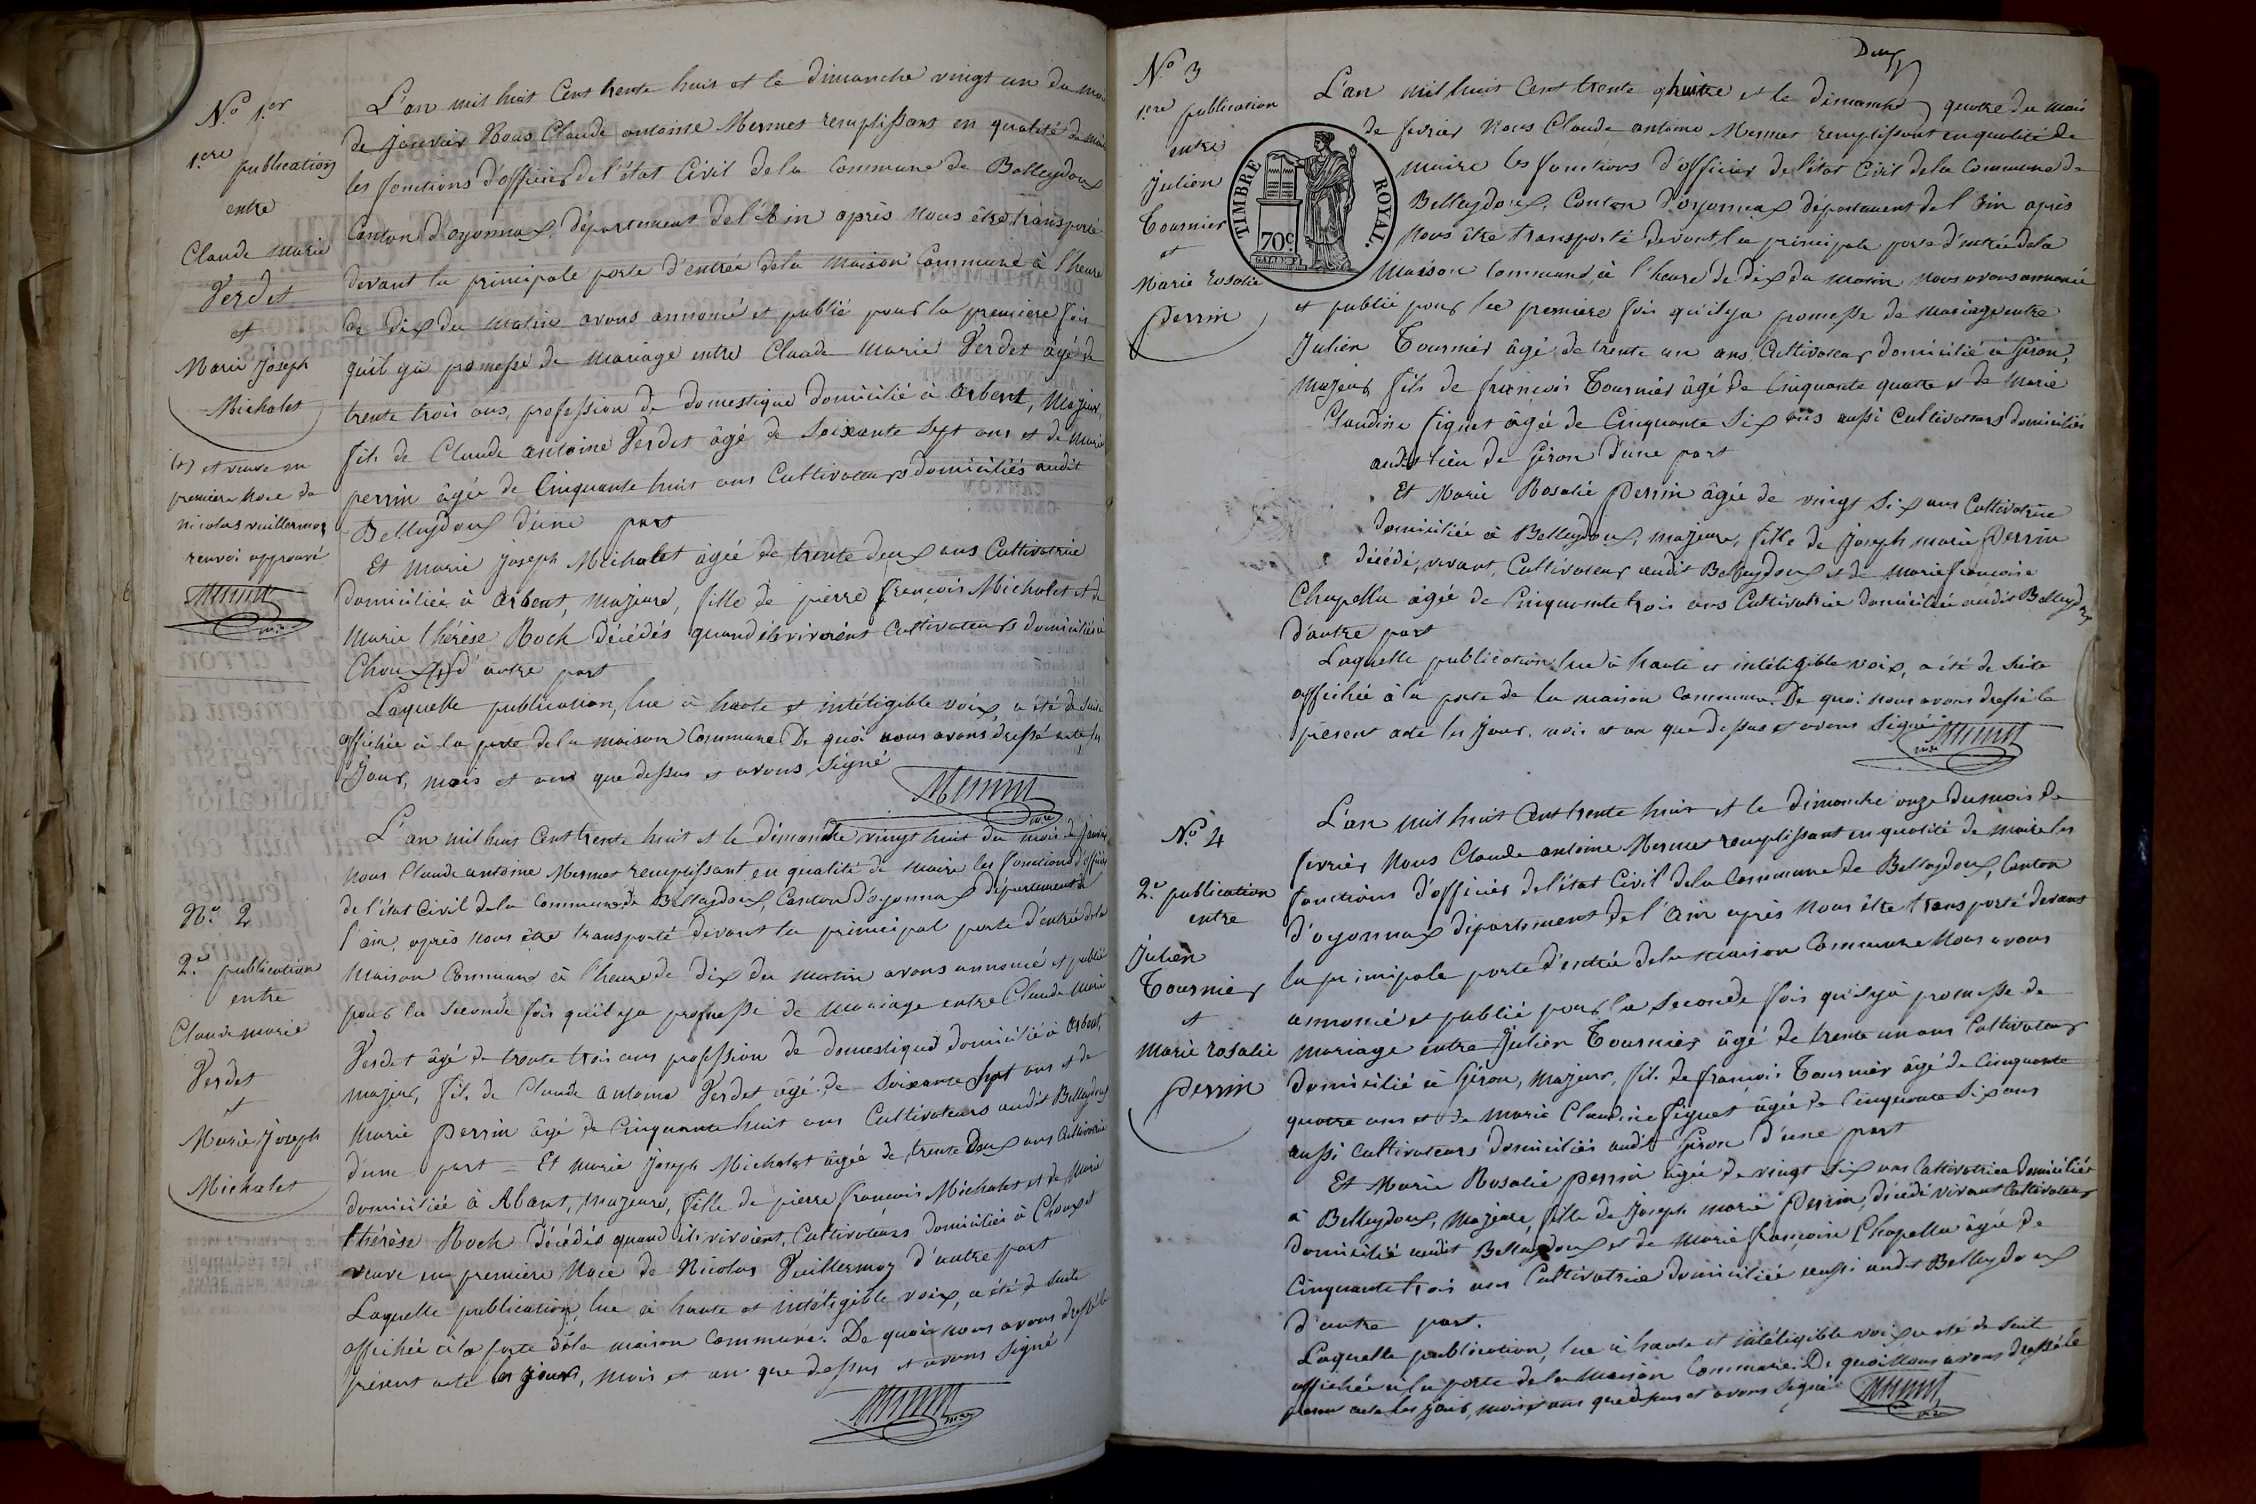 N.o 1.er
1.ere publication
entre
Claude Marie
Verdet
et
Marie Joseph
Michalet
(+) et veuve en
premiere Noce de
nicolas vuillermoz
renvoi approuvé
L'an mil huit Cent trente huit et le dimanche vingt un du mois
de Janvier Nous Claude antoine Mermet remplissant en qualité de maire
les fonctions d'officier de l'état Civil de la Commune de Belleydoux
Canton d'oyonnax, département de l'Ain après nous être transporté
devant la principale porte d'entrée de la maison Commune à l'heure
de dix du matin avons annoncé et publié pour la premiere fois
qu'il y a promesse de mariage entre Claude Marie Verdet âgé de
trente trois ans, profession de domestique domicilié à Arbent, Majeur
fils de Claude antoine Verdet âgé de Soixante Sept ans et de Marie
perrin âgée de Cinquante huit ans Cultivateurs domiciliés audit
Belleydoux d'une part
Et Marie Joseph Michalet âgée de trente deux ans Cultivatrice
domiciliée à Arbent, majeure, fille de pierre françois Michalet et de
Marie thérèse Roch décédés quand ils vivoient Cultivateurs domiciliés à
Choux (+) d'autre part
Laquelle publication, lue à haute et intéligible voix, a été de suite
affichée à la porte de la maison Commune De quoi nous avons dressé acte, les
Jour, mois et an que dessus et avons Signé
Mermet
N.o 2
2.e publication
entre
Claude marie
Verdet
et
Marie Joseph
Michalet
L'an mil huit Cent trente huit et le dimanche vingt huit du mois de Janvier
nous Claude antoine Mermet remplissant en qualité de maire les fonctions d'officier
de l'état Civil de la Commune de Belleydoux, Canton d'oyonnax département de
l'ain, après nous être transporté devant la principal porte d'entrée de la
Maison Commune à l'heure de dix du matin avons annoncé et publié
pour la Seconde fois qu'il y a promesse de mariage entre Claude Marie
Verdet âgé de trente trois ans profession de domestique domicilié à Arbent,
majeur, fils de Claude antoine Verdet âgé de Soixante Sept ans et de
Marie perrin âgé de Cinquante huit ans Cultivateurs audit Belleydoux
d'une part = Et Marie Joseph Michalet âgée de trente Deux ans Cultivatrice
domiciliée à Abant, majeure, fille de pierre françois Michalet et de Marie
thérèse Roch Décédés quand ils vivoient, Cultivateurs domiciliés à Choux et
veuve en premiere Noce de Nicolas Vuillermoz d'autre part
Laquelle publication, lue à haute et intéligible voix, a été de suite
affichée à la porte de la maison Commune. De quoi nous avons dressé le
présent acte les jour, mois et an que dessus et avons Signé
Mermet
Deux
N.o 3
1.re publication
entre
Julien
Tournier
et
Marie rosalie
Perrin
TIMBRE ROYAL.
70c.
L'an mil huit Cent trente huit et le dimanche quatre du mois
de fevrier Nous Claude antoine Mermet remplissant en qualité de
maire les fonctions d'officier de l'état Civil de la Commune de
Belleydoux, Canton d'oyonnax département de l'Ain après
Nous être transporté devant la principale porte d'entrée de la
Maison Commune, à l'heure de dix du matin nous avons annoncé
et publié pour la premiere fois qu'il y a promesse de mariage entre
Julien Tournier âgé de trente un ans Cultivateur domicilié à Giron,
Majeur fils de françois Tournier âgé de Cinquante quatre et de Marie
Claudine figuet âgée de Cinquante Six ans aussi Cultivateurs domiciliés
audit lieu de Giron d'une part
Et Marie Rosalie Perrin âgée de vingt Six ans Cultivatrice
domiciliée à Belleydoux, majeure, fille de Joseph marie Perrin
décédé, vivant Cultivateur audit Belleydoux et de marie françoise
Chapellu âgée de Cinquante trois ans Cultivatrice domiciliée audit Belleydoux
d'autre part
Laquelle publication lue à haute et intéligible voix, a été de suite
affichée à la porte de la maison Commune. De quoi nous avons dressé le
présent acte les Jour, mois et an que dessus et avons Signé
Mermet
N.o 4
2.e publication
entre
Julien
Tournier
et
Marie rosalie
Perrin
L'an mil huit Cent trente huit et le dimanche onze du mois de
fevrier Nous Claude antoine Mermet remplissant en qualité de maire les
fonctions d'officier de l'état Civil de la Commune de Belleydoux, Canton
d'oyonnax département de l'Ain après Nous être transporté devant
la principale porte d'entrée de la maison Commune Nous avons
annoncé et publié pour la Seconde fois qu'il y a promesse de
mariage entre Julien Tournier âgé de trente un ans Cultivateur
domicilié à Giron, Majeur, fils de françois Tournier âgé de Cinquante
quatre ans et de Marie Claudine figuet âgée de Cinquante Six ans
aussi Cultivateurs domiciliés audit Giron d'une part
Et Marie Rosalie Perrin âgée de vingt Six ans Cultivatrice domiciliée
à Belleydoux, Majeure, fille de Joseph marie Perrin, décédé vivant Cultivateur
domicilié audit Belleydoux et de Marie françoise Chapellu âgée de
Cinquante trois ans Cultivatrice domiciliée aussi audit Belleydoux
d'autre part.
Laquelle publication, lue à haute et intéligible voix a été de suit
affichée à la porte de la Maison Commune. De quoi Nous avons dressé le
présent acte les Jour, mois et ans que dessus et avons Signé
Mermet